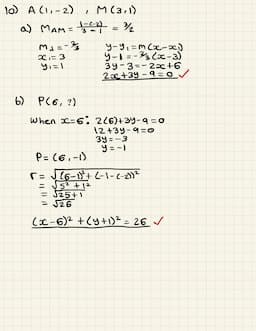 10) A(1,-2) , M(3,1)
a) MAM = 1-(-2)/3-1 = 3/2
M⊥ = -2/3
x₁ = 3
y₁ = 1
y-y₁ = m(x-x₁)
y-1 = -2/3(x-3)
3y-3 = -2x+6
2x+3y-9=0 ✓
b) P(6, ?)
When x=6: 2(6)+3y-9=0
12+3y-9=0
3y=-3
y=-1
P=(6,-1)
r = √(6-1)²+(-1-(-2))²
= √5²+1²
= √25+1
= √26
(x-6)² + (y+1)² = 26 ✓